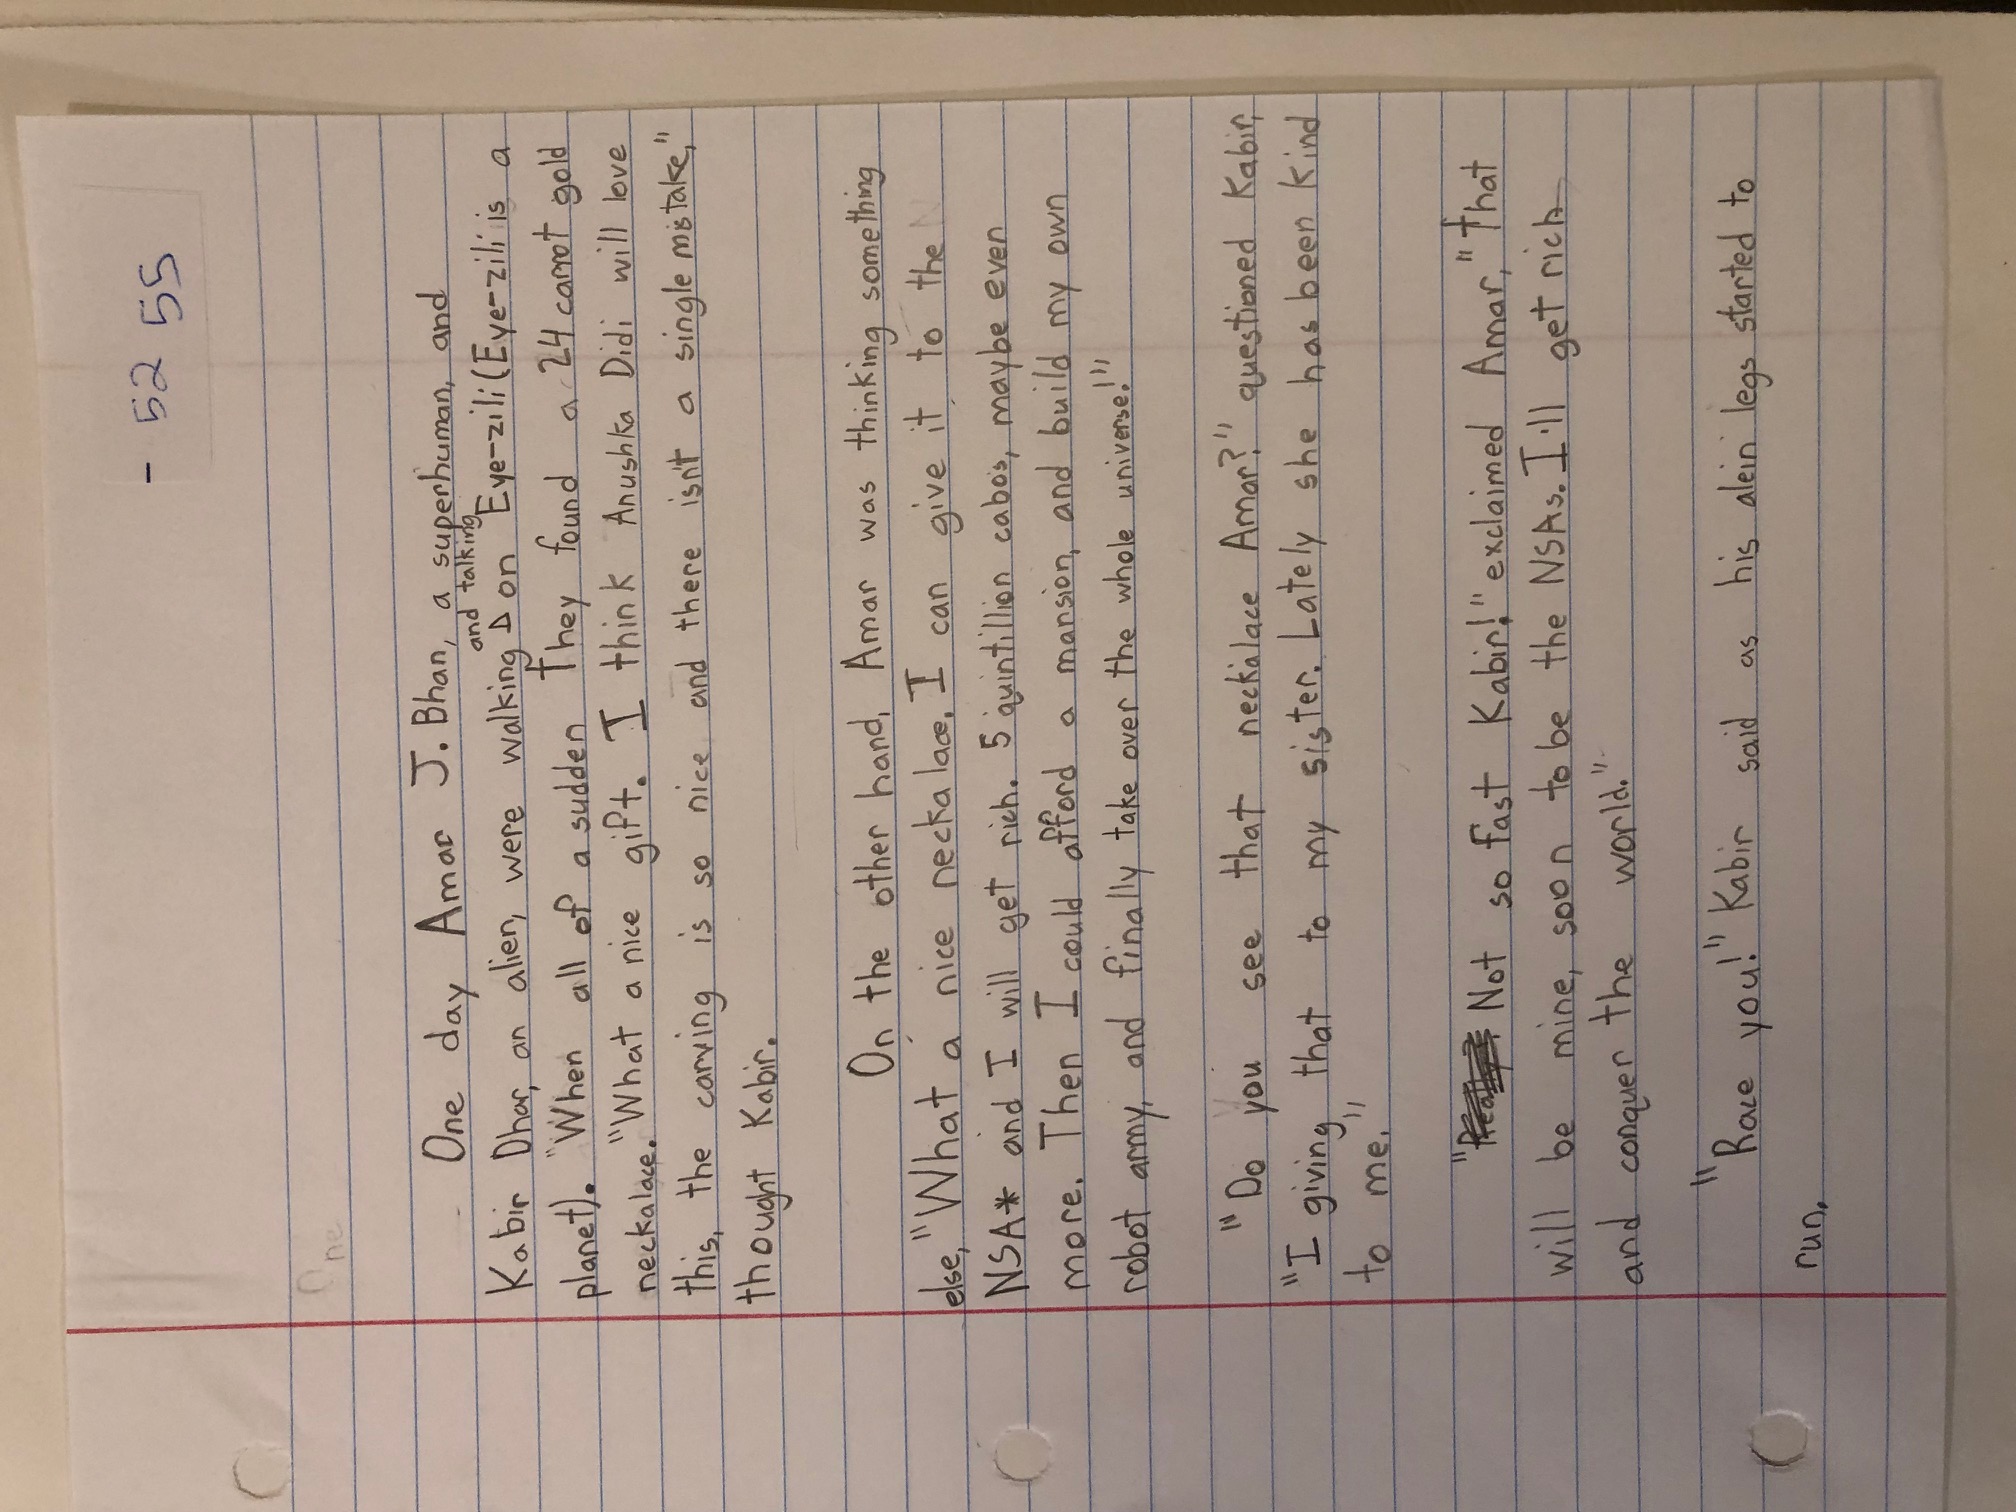 - 52 55
One
One day Amar J. Bhan, a superhuman, and
and talking
Kabir Dhar, an alien, were walking on Eye-zili (Eye-zili is a
planet). "When all of a sudden They found a 24 carrot gold
neckalace. "What a nice gift. I think Anushka Didi will love
this, the carving is so nice and there isn't a single mistake,"
thought Kabir.
On the other hand, Amar was thinking something
else, "What a nice neckalace. I can give it to the
NSA* and I will get rich. 5 quintillion cabos, maybe even
more. Then I could afford a mansion, and build my own
robot army, and finally take over the whole universe!"
"Do you see that neckalace Amar?" questioned Kabir,
"I giving that to my sister. Lately she has been kind
to me."
"Not so fast Kabir!" exclaimed Amar, "that
will be mine, soon to be the NSAs. I'll get rich
and conquer the world."
"Race you!" Kabir said as his alein legs started to
run.